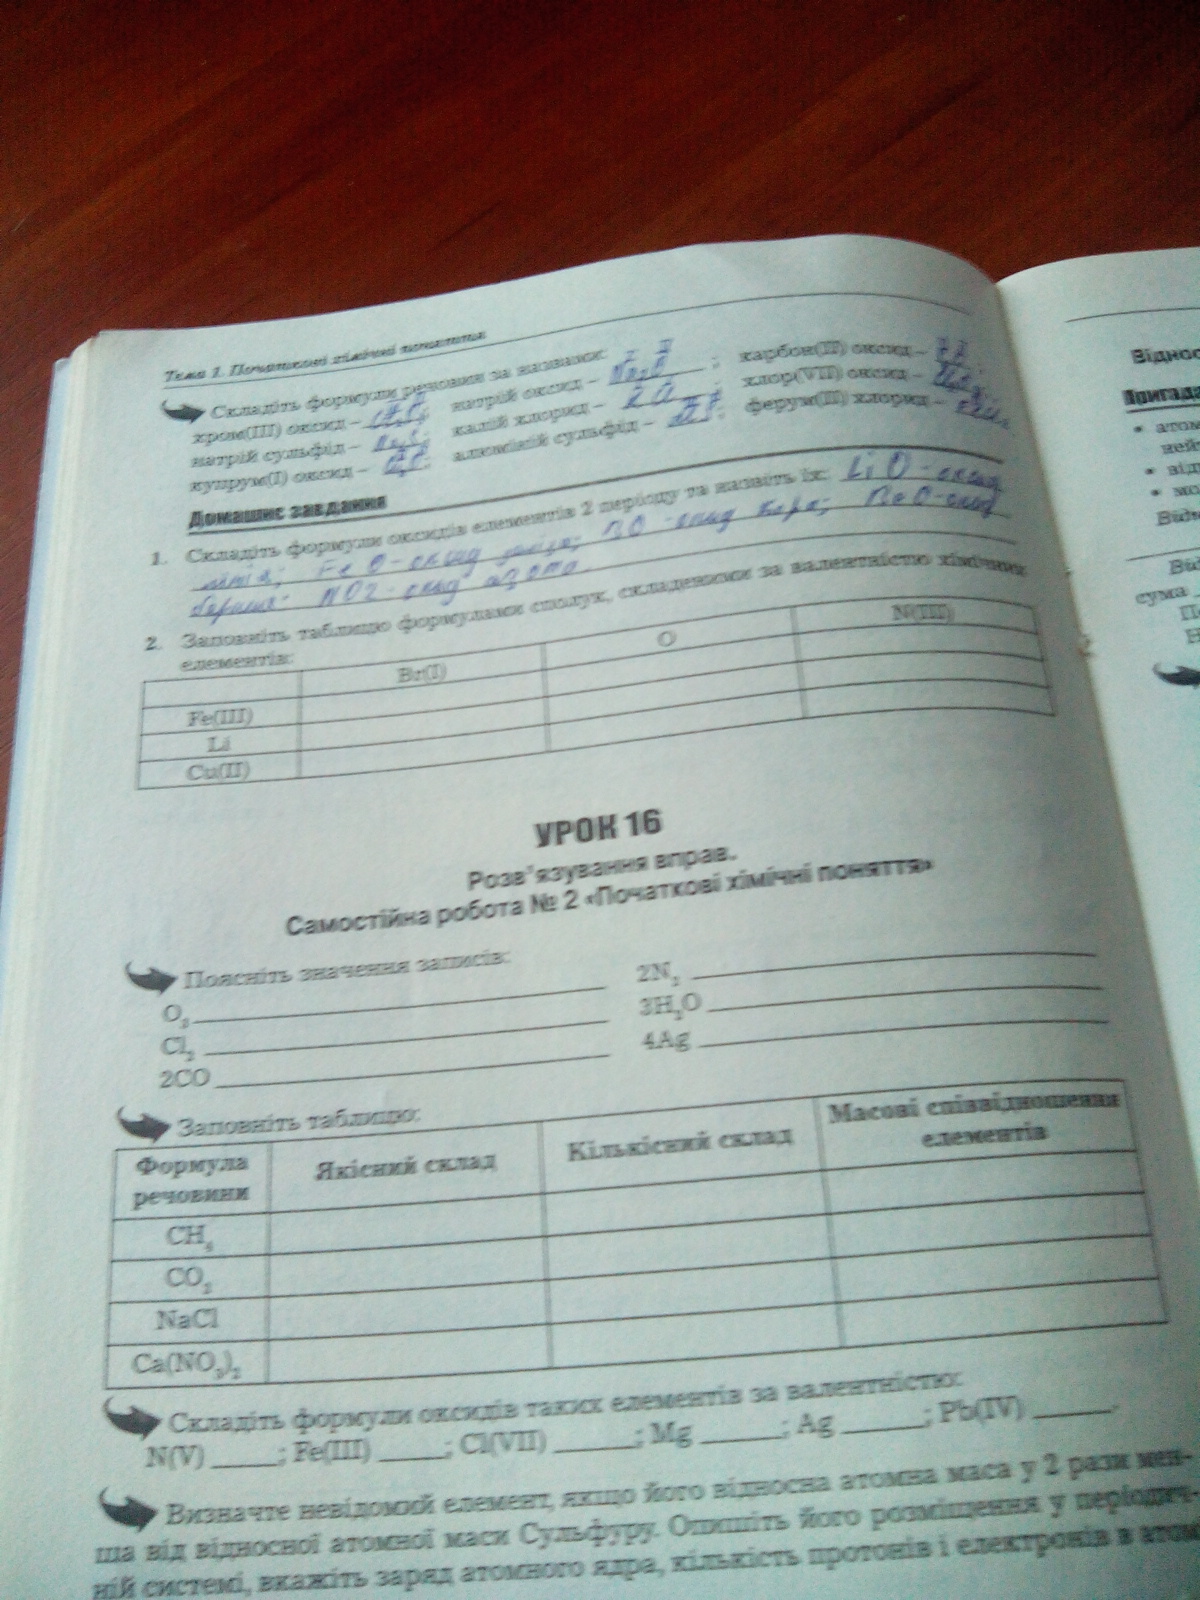 Тема 1. Початкові хімічні поняття
Складіть формули речовин за назвами:
хром(III) оксид – ; натрій оксид – Na₂O ; карбон(II) оксид –
натрій сульфід – ; калій хлорид – ; хлор(VII) оксид –
купрум(I) оксид – ; алюміній сульфід – ; ферум(II) хлорид –
Домашнє завдання
1. Складіть формули оксидів елементів 2 періоду та назвіть їх: LiO - оксид
літія; FeO - оксид ; BO - оксид бора; BeO - оксид
берилия; NO2 - оксид азота.
2. Заповніть таблицю формулами сполук, складеними за валентністю хімічних
елементів:
Br(I) O N(III)
Fe(III)
Li
Cu(II)
УРОК 16
Розв'язування вправ.
Самостійна робота № 2 «Початкові хімічні поняття»
Поясніть значення записів:
2N₂
3H₂O
Cl₂
4Ag
2CO
Заповніть таблицю:
Формула речовини Якісний склад Кількісний склад Масові співвідношення елементів
CH₄
CO₂
NaCl
Ca(NO₃)₂
Складіть формули оксидів таких елементів за валентністю:
N(V) _____; Fe(III) _____; Cl(VII) _____; Mg _____; Ag _____; Pb(IV) _____.
Визначте невідомий елемент, якщо його відносна атомна маса у 2 рази мен-
ша від відносної атомної маси Сульфуру. Опишіть його розміщення у періодич-
ній системі, вкажіть заряд атомного ядра, кількість протонів і електронів в атом
Віднос
Пригада
• атом
ней
• від
• мо
Від
сума